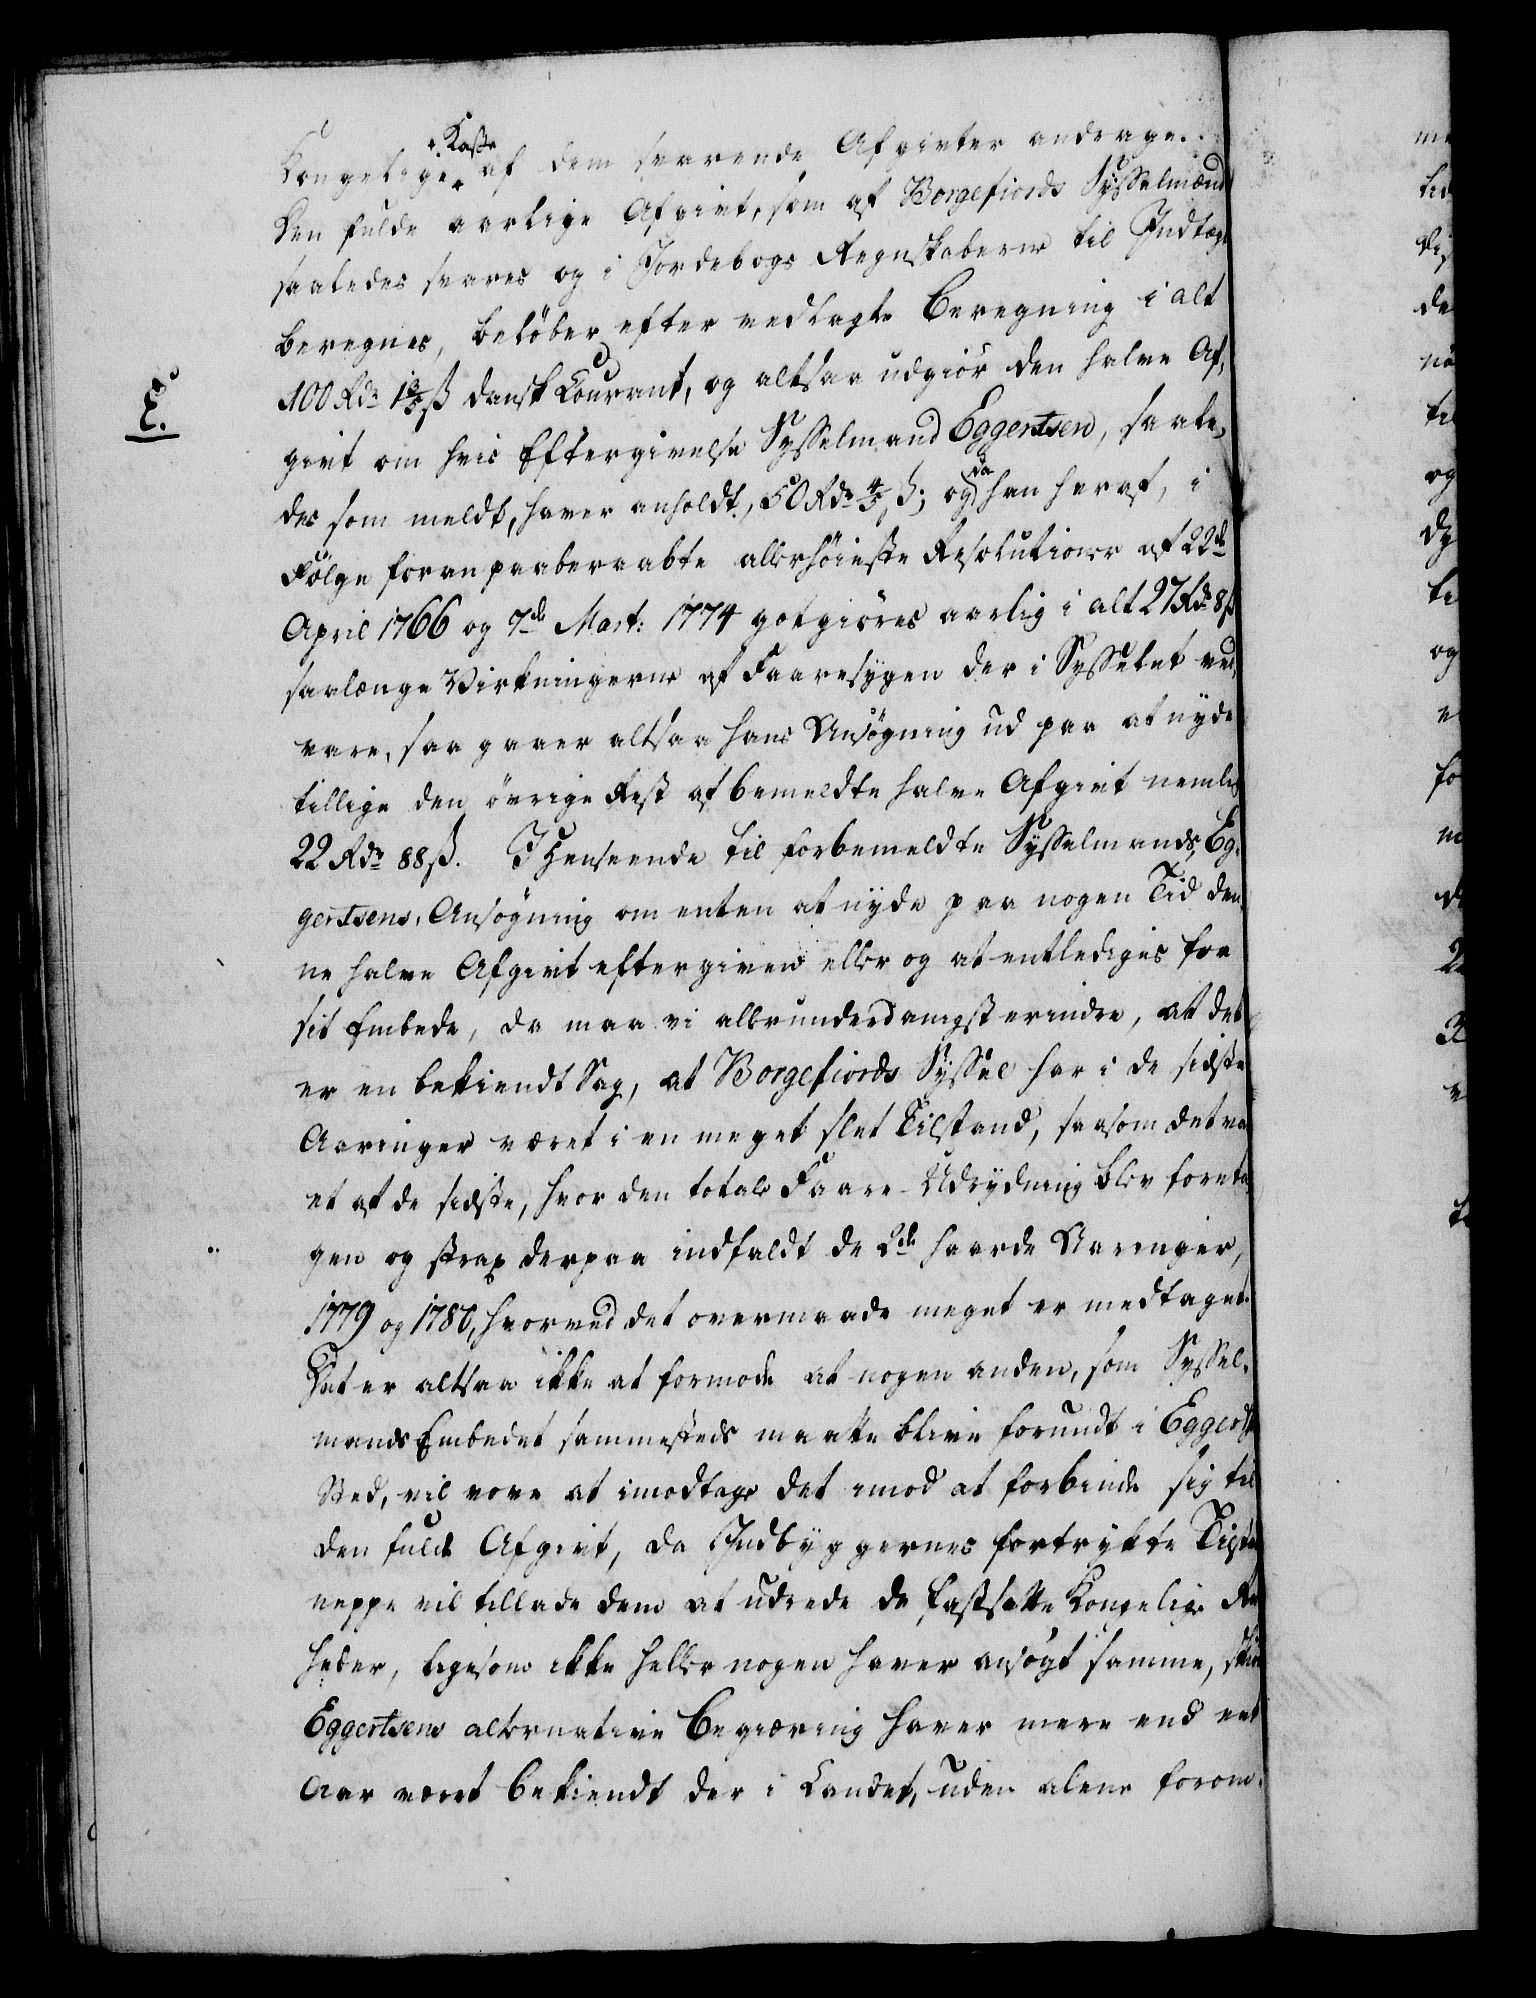 Kongelige Kasse af dem svarende Afgivter andrage.
Den fulde aarlige Afgivt, som af Borgefiords Sysselmænd
saaledes svares og i Jordebogs Regnskaberne til Indtægt
beregnes, beløber efter vedlagte Beregning i alt
E.
100 Rdr 1 3/5 ß dansk Courant, og altsaa udgiør den halve Af-
givt om hvis Eftergivelse Sysselmand Eggertsen, saale-
des som meldt, haver anholdt, 50 Rdr 4/5 ß; og da han heraf, i
Følge foran paaberaabte allerhøieste Resolutioner af 22de
April 1766 og 7de Mart: 1774 gotgiøres aarlig i alt 27 Rdr 8 ß
saalænge Virkningerne af Faaresygen der i Sysselet ved-
vare, saa gaaer altsaa hans Ansøgning ud paa at nyde
tillige den øvrige Rest af bemeldte halve Afgivt nemlig
22 Rdr 88 ß. I Henseende til forbemeldte Sysselmands, Eg-
gertsens, Ansøgning om enten at nyde paa nogen Tid den-
ne halve Afgivt eftergiven eller og at entlediges fra
sit Embede, da maa vi allerunderdanigst erindre, at det
er en bekiendt Sag, at Borgefiords Syssel har i de sidste
Aaringer været i en meget slet Tilstand, saasom det var
et af de sidste, hvor den totale Faare-Udrydning blev foreta-
gen og strax derpaa indfaldt de 2de haarde Aaringer,
1779 og 1780, hvorved det overmaade meget er medtaget.
Det er altsaa ikke at formode at nogen anden, som Syssel-
mands Embedet sammesteds maatte blive forundt i Eggerts
Sted, vil vove at imodtage det imod at forbinde sig til
den fulde Afgivt, da Indbyggernes fortrykte Tilstand
neppe vil tillade dem at udrede de fastsatte Kongelige
heder, ligesom ikke heller nogen haver ansøgt samme, skiønt
Eggertsens alternative Begiæring haver mere end eet
Aar været bekiendt der i Landet, uden alene forom-